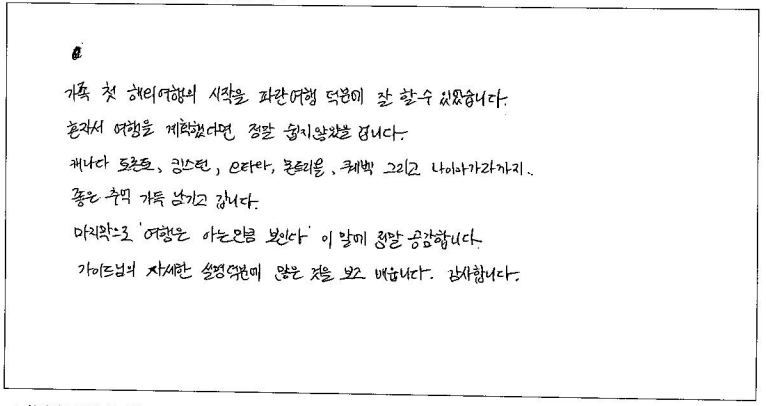 가족 첫 해외여행의 시작을 파란여행 덕분에 잘 할 수 있었습니다.
혼자서 여행을 계획했다면 정말 쉽지않았을 겁니다.
캐나다 토론토, 킹스턴, 오타와, 몬트리올, 퀘벡 그리고 나이아가라까지..
좋은 추억 가득 남기고 갑니다.
마지막으로 '여행은 아는만큼 보인다' 이 말에 정말 공감합니다.
가이드님의 자세한 설명덕분에 많은 것을 보고 배웁니다. 감사합니다.